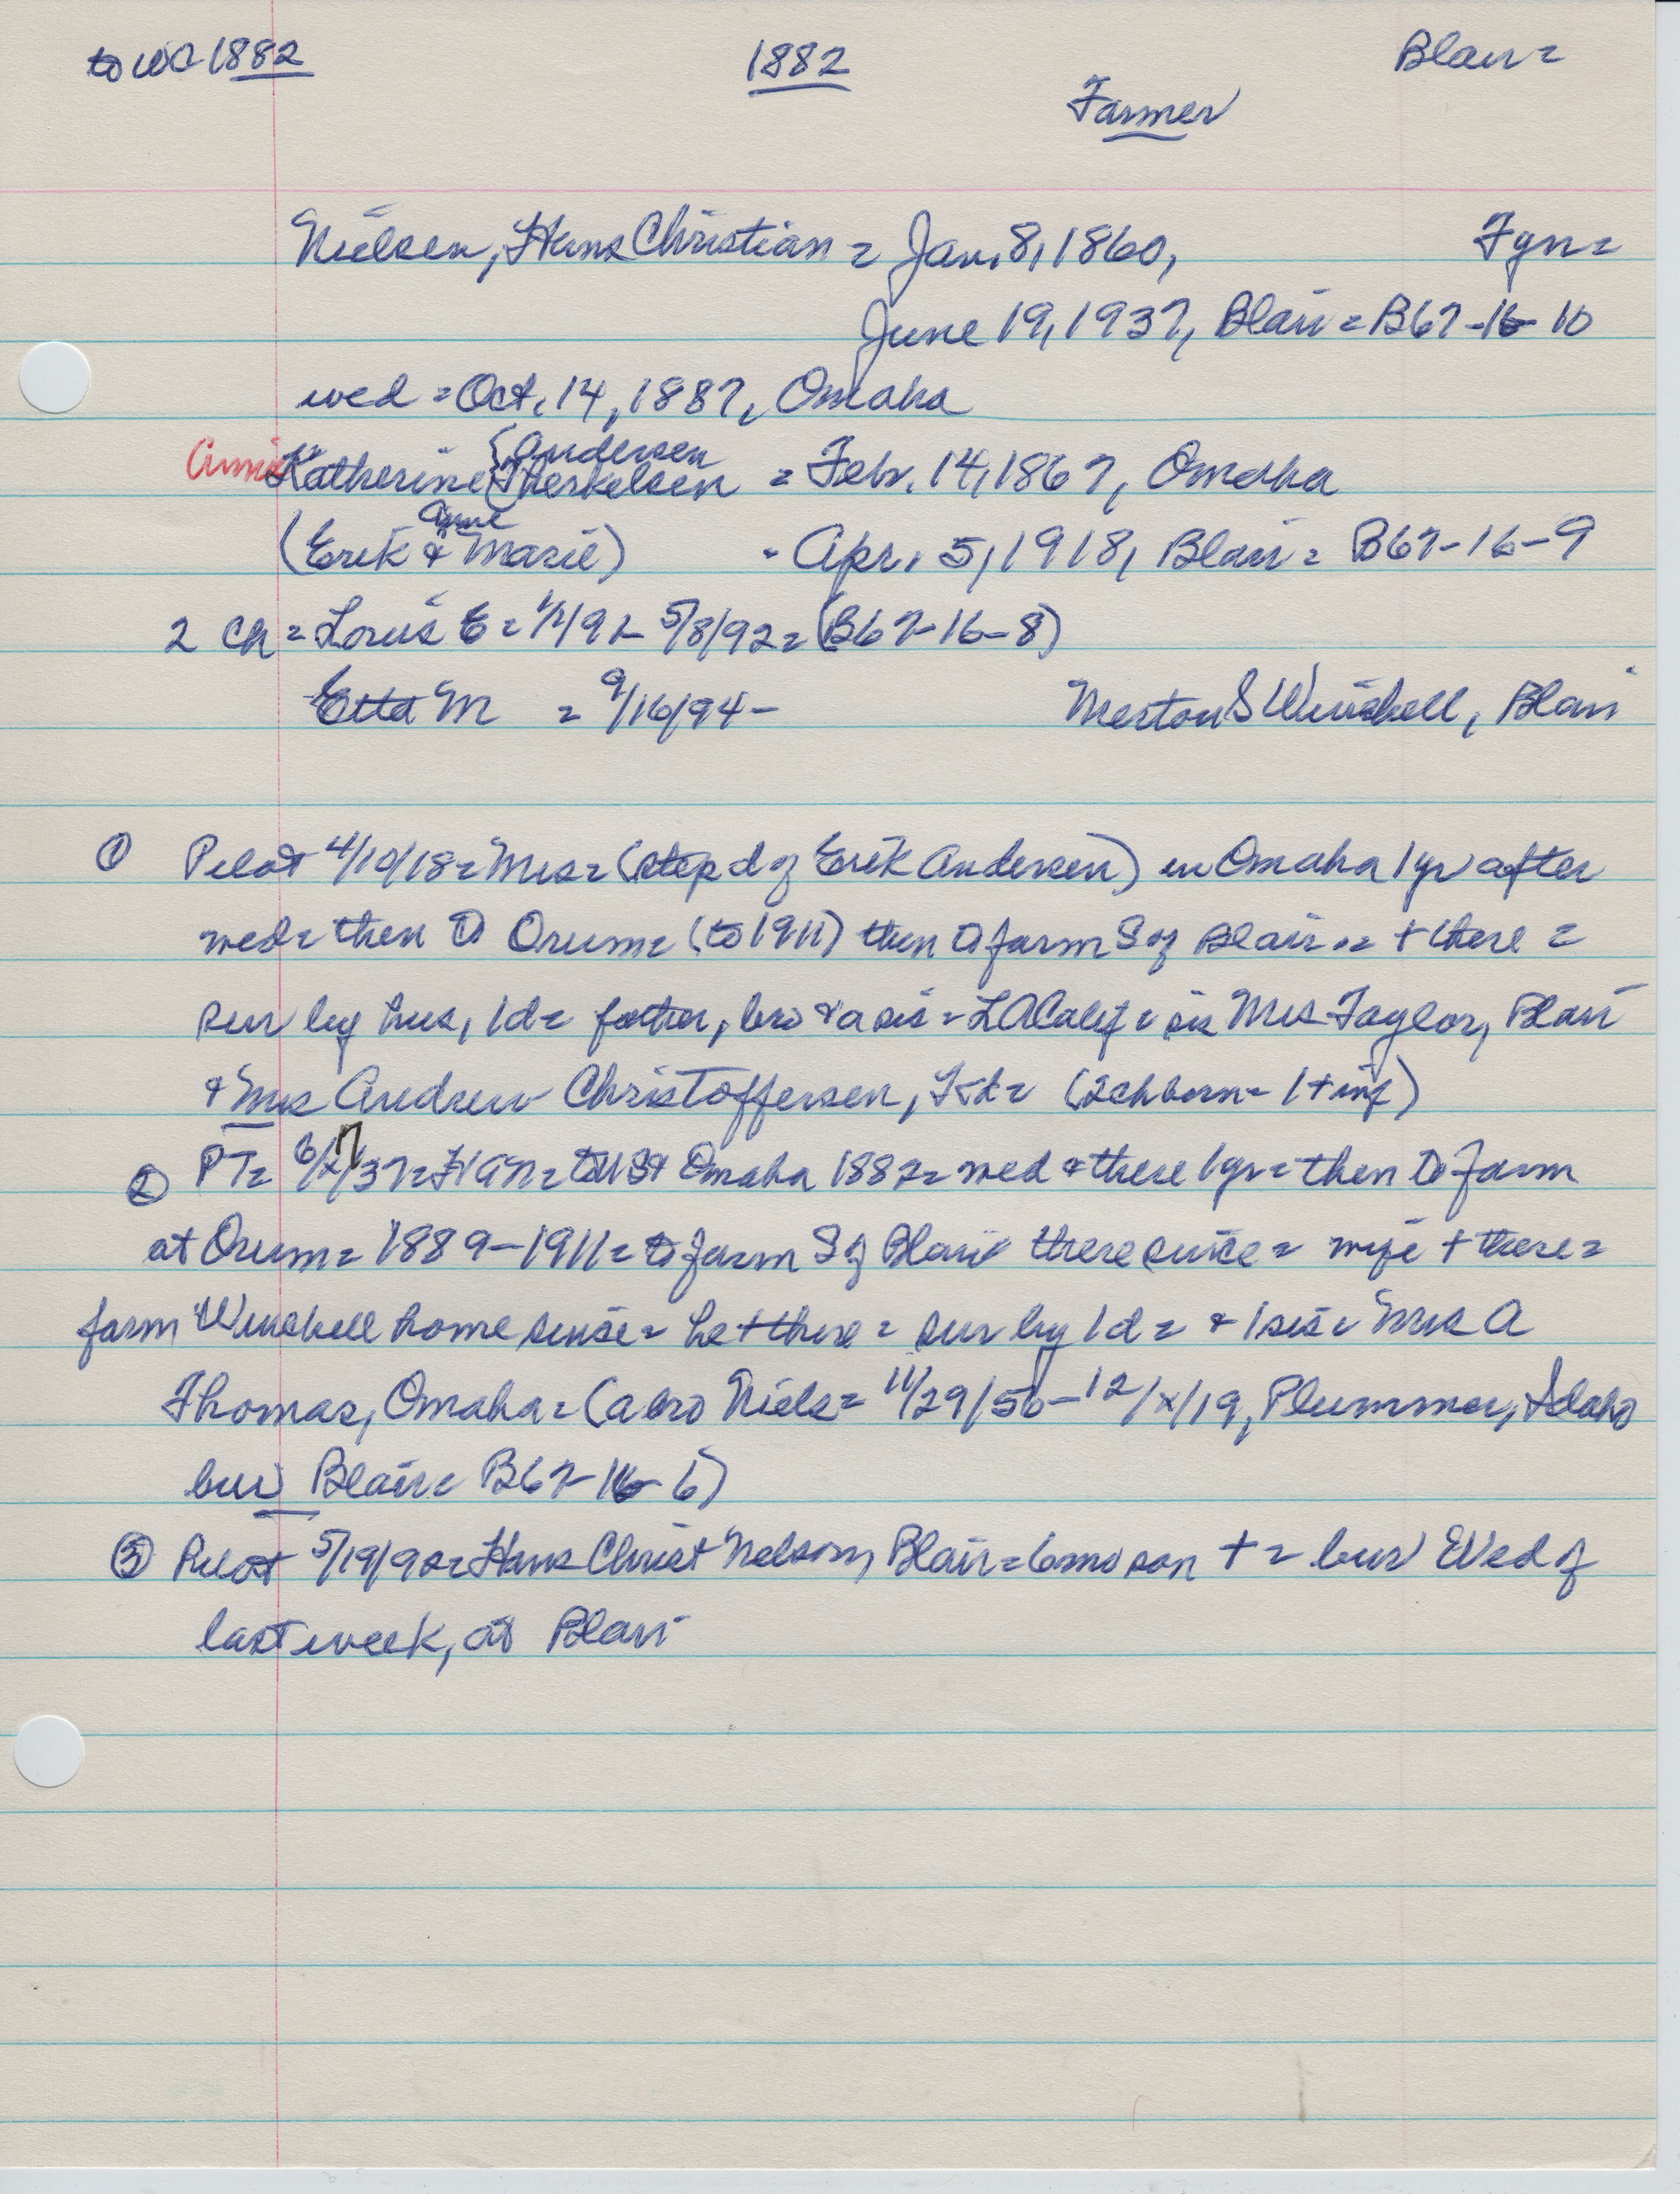 to WC 1882 1882 Blair =
Farmer
Nielsen, Hans Christian = Jan. 8, 1860, Fyn =
June 19, 1937, Blair = B67-16-10
wed = Oct. 14, 1887, Omaha
Annie Katherine { Andersen Therkelsen = Febr. 14, 1867, Omaha
(Erik & Anne Marie) - Apr. 5, 1918, Blair = B67-16-9
2 ch = Louis E = 1/1/91- 5/8/92 = (B67-16-8)
Etta M = 9/16/94- Merton S Winchell, Blair
① Pilot 4/10/18 = Mrs = (step d of Erik Andersen) in Omaha 1 yr after
wed = then to Orum = (to 1911) then to farm S of Blair = + there =
sur by hus, 1 d = father, bro & a sis = LA Calif = sis Mrs Taylor, Blair
& Mrs Andrew Christoffersen, = (2 ch born - 1 + inf)
② PT = 6/x/37 = = to US & Omaha 1882 = wed & there 1 yr = then to farm
at Orum = 1889-1911 = to farm S of Blair there since = wife + there =
farm Winchell home since = he + there = sur by 1 d = & 1 sis = Mrs A
Thomas, Omaha = (a bro Niels = 11/29/56-12/x/19, Plummer, Idaho
bur Blair = B67-16-6)
③ Pilot 5/19/92 = Hans Christ Nelson, Blair = 6 mo son + = bur Wed of
last week, at Blair